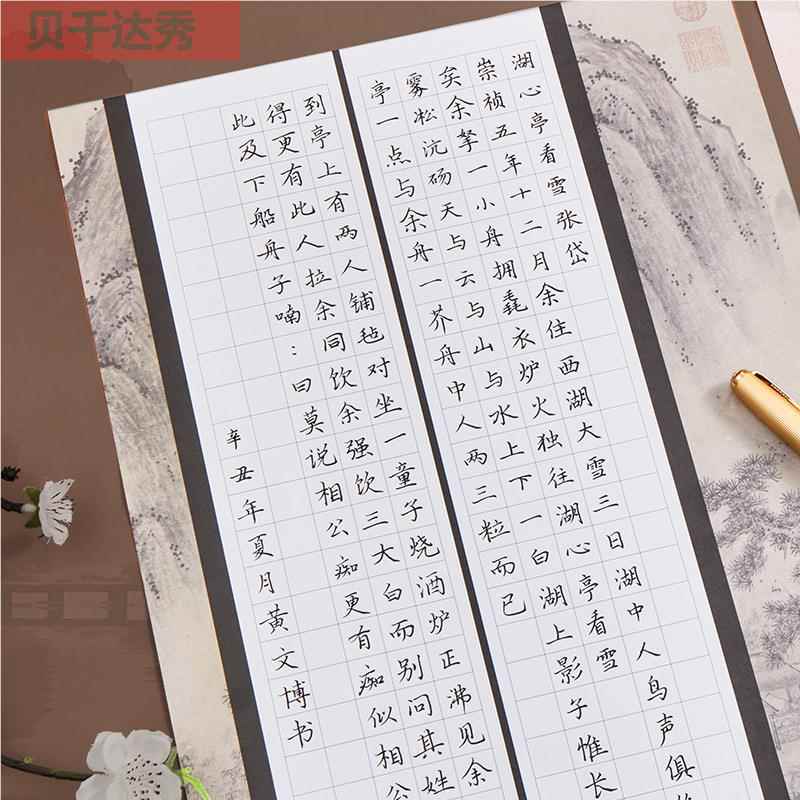 贝千达秀
湖心亭看雪张岱
崇祯五年十二月余住西湖大雪三日湖中人鸟声俱
矣余拏一小舟拥毳衣炉火独往湖心亭看雪
雾凇沆砀天与云与山与水上下一白湖上影子惟长
亭一点与余舟一芥舟中人两三粒而已
到亭上有两人铺毡对坐一童子烧酒炉正沸见余
得更有此人拉余同饮余强饮三大白而别问其姓
此及下船舟子喃：曰莫说相公痴更有痴似相公
辛丑年夏月黄文博书